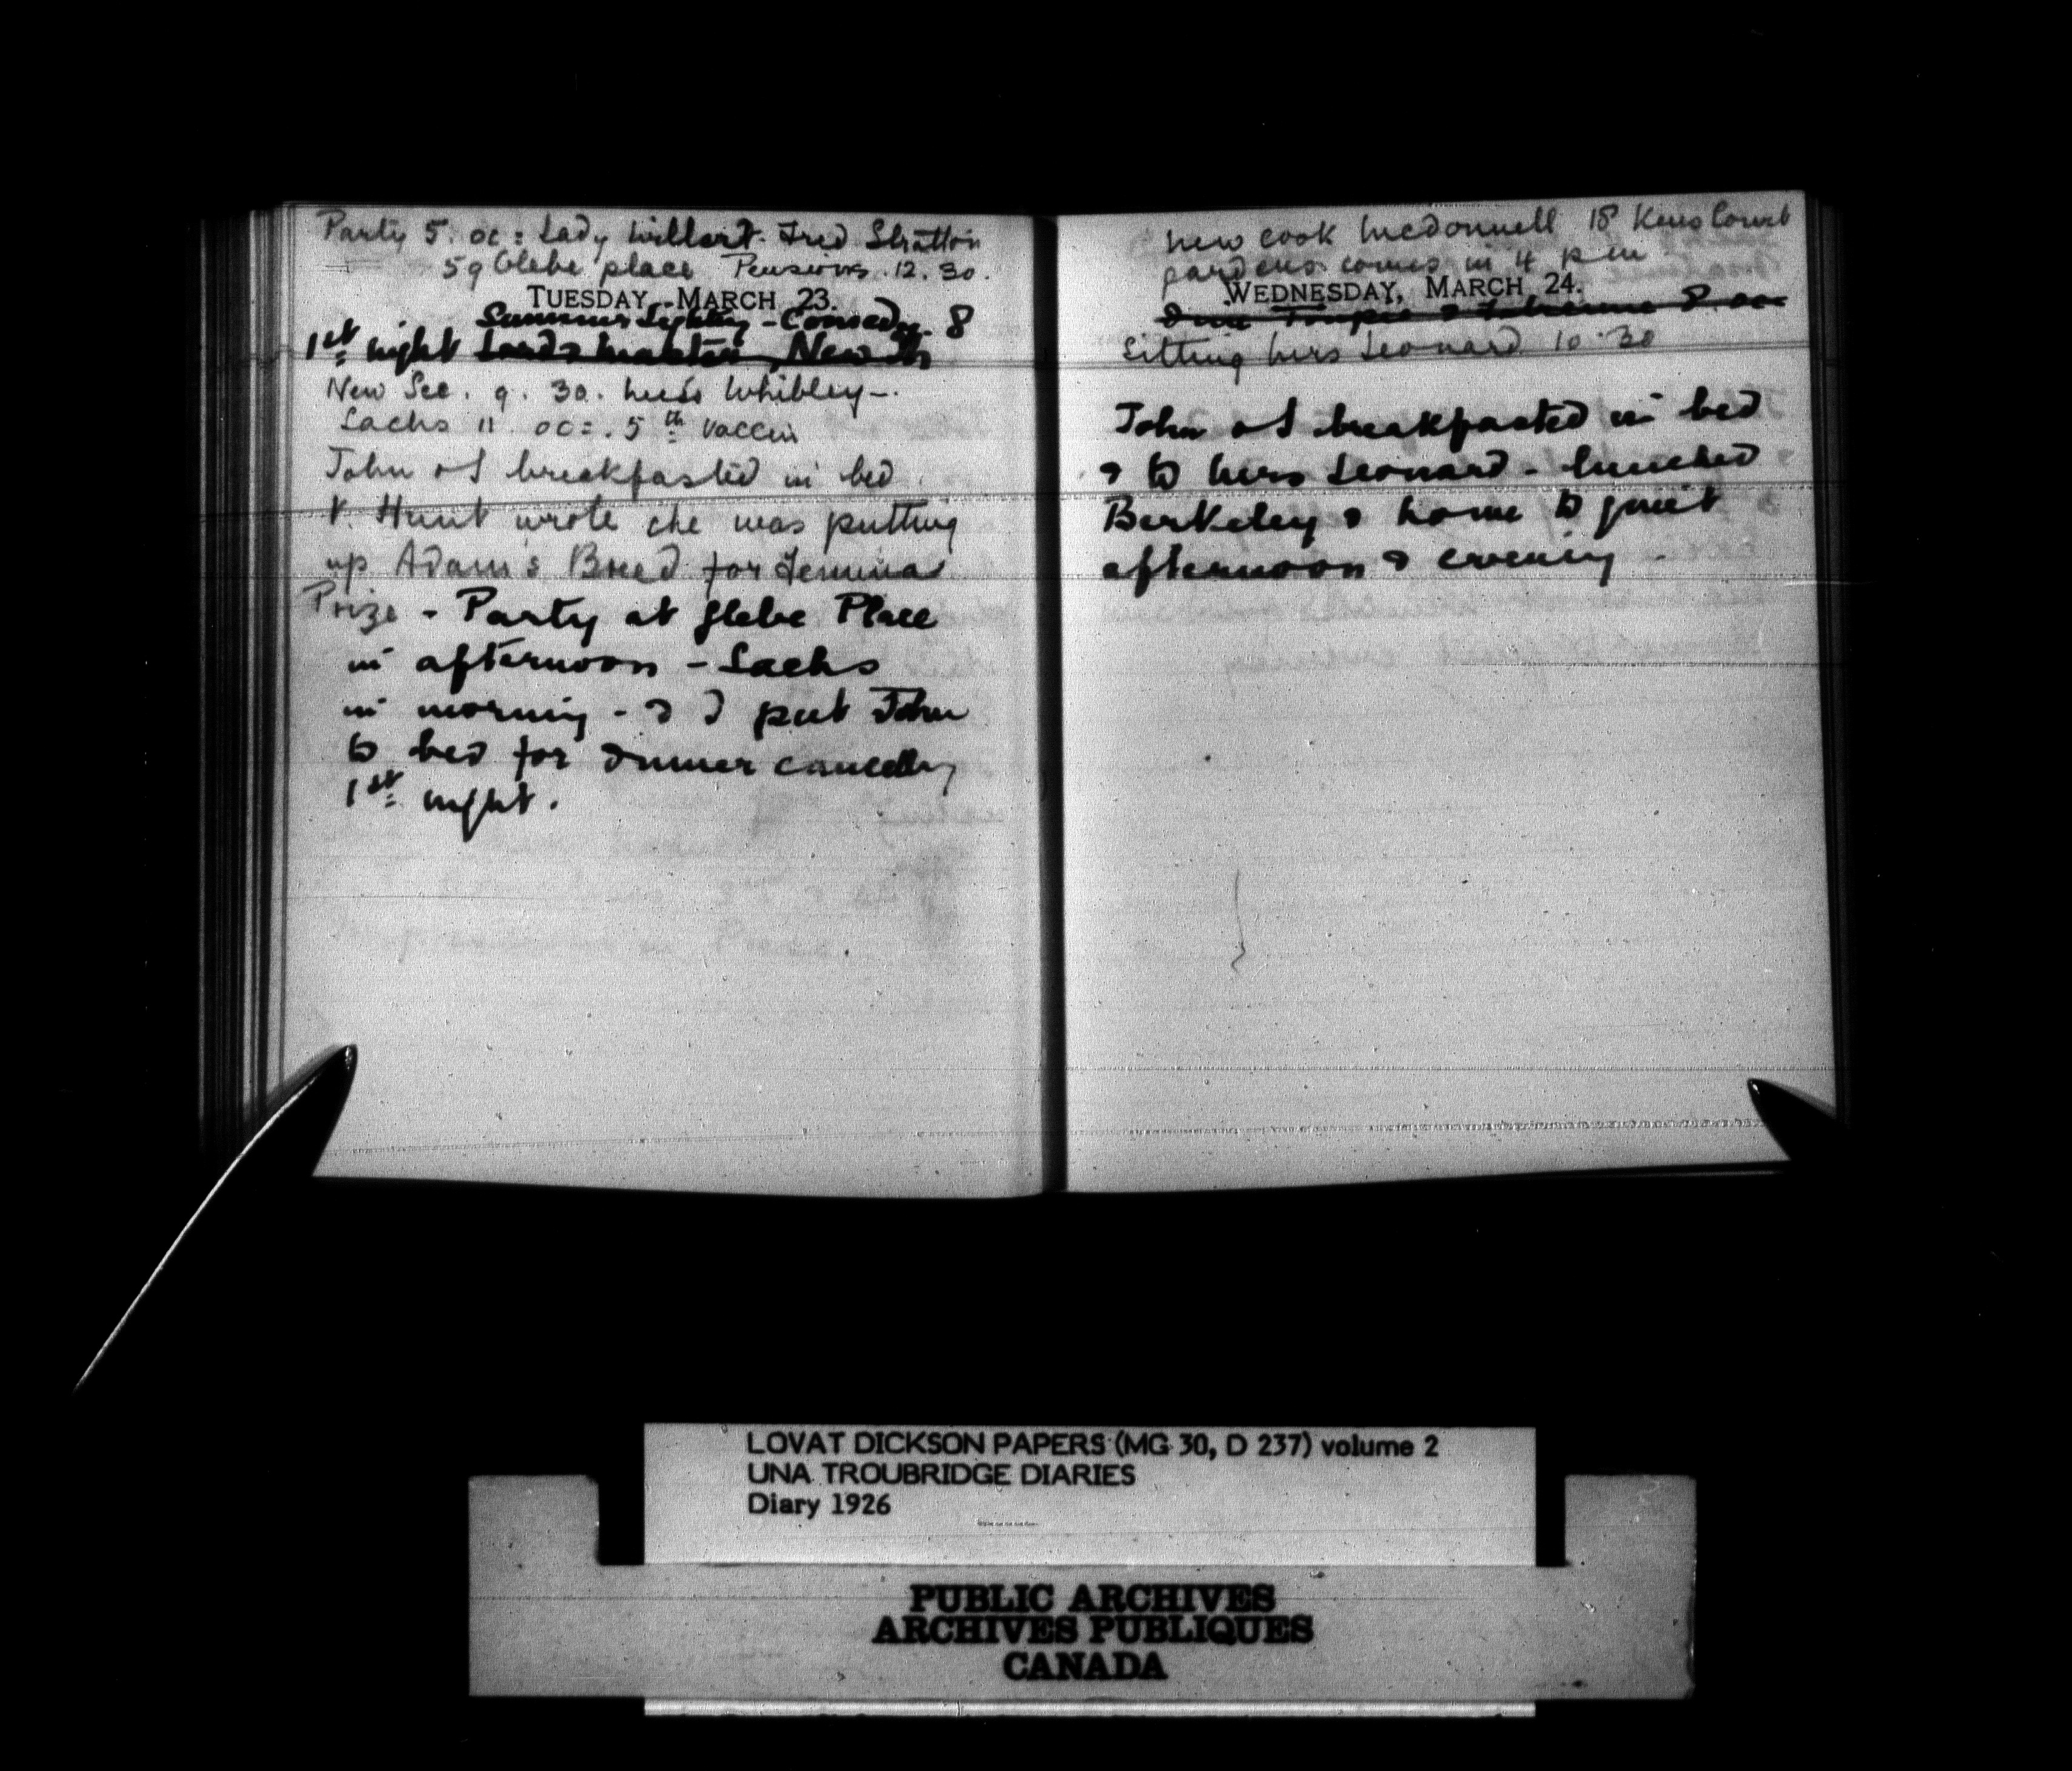 Party 5. oc: Lady Willert. Fred Stratton
59 Glebe place Pensions 12. 30.
TUESDAY, MARCH 23.
Summer Lightning - Comedy. 8
1st night
New Sec. 9. 30. Miss Whibley -.
Sachs 11 oc=. 5th vaccin
John & I breakfasted in bed
V. Hunt wrote she was putting
up Adam's Breed for Femina
Prize - Party at Glebe Place
in afternoon - Sachs
in morning - & I put John
to bed for dinner cancelling
1st night.
New cook McDonnell 18 Kens Court
gardens comes in 4 pm
WEDNESDAY, MARCH 24.
Dine Toupie & Fabienne 8. oc=
Sitting Mrs Leonard 10.30
John & I breakfasted in bed
& to Mrs Leonard - lunched
Berkeley & home to quiet
afternoon & evening -
LOVAT DICKSON PAPERS (MG 30, D 237) volume 2
UNA TROUBRIDGE DIARIES
Diary 1926
PUBLIC ARCHIVES
ARCHIVES PUBLIQUES
CANADA